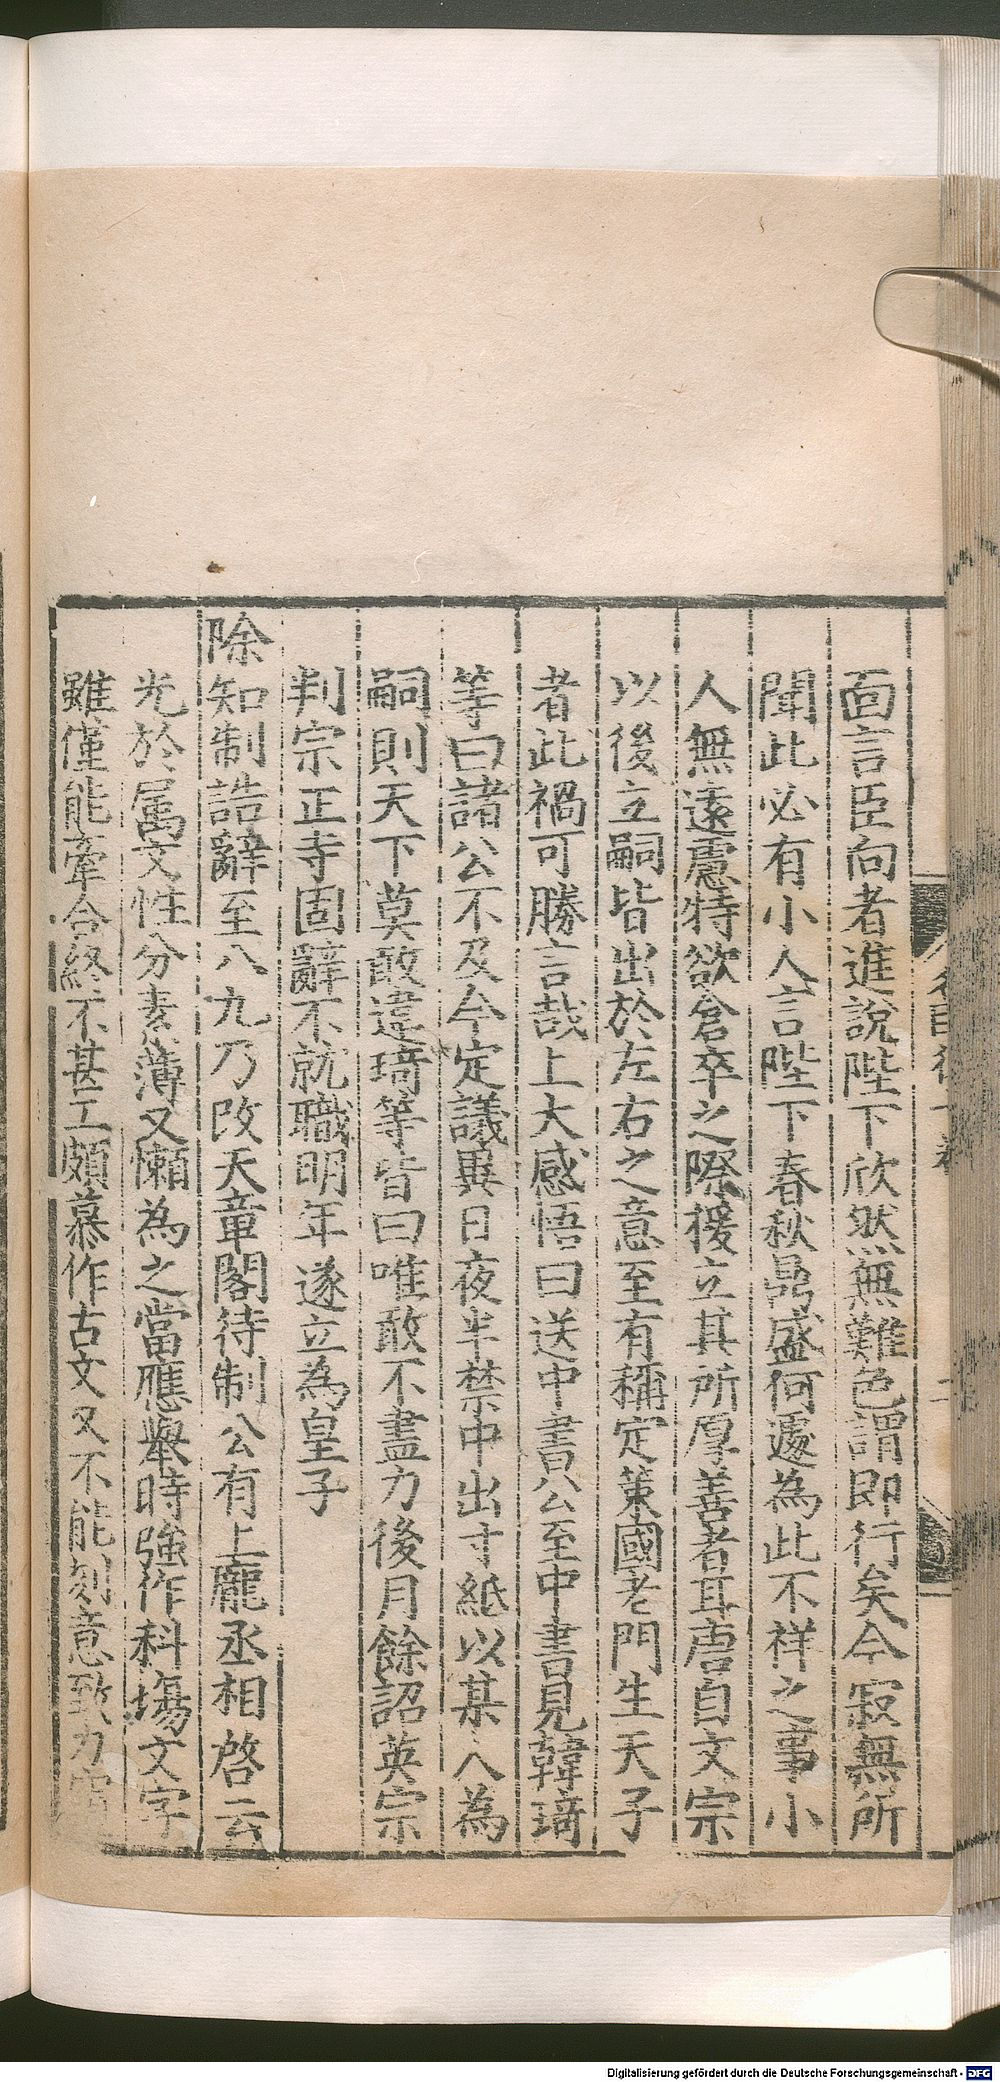 面言臣向者進說陛下欣然無難色謂即行矣今寂無所
聞此必有小人言陛下春秋鼎盛何遽為此不祥之事小
人無遠慮特欲倉卒之際援立其所厚善者耳唐自文宗
以後立嗣皆出於左右之意至有稱定策國老門生天子
者此禍可勝言哉上大感悟曰送中書公至中書見韓琦
等曰諸公不及今定議異日夜半禁中出寸紙以某人為
嗣則天下莫敢違琦等皆曰唯敢不盡力後月餘詔英宗
判宗正寺固辭不就職明年遂立為皇子
除知制誥辭至八九乃改天章閣待制公有上龐丞相啓云
光於属文性分素薄又懶為之當應舉時強作科場文字
雖僅能牽合終不甚工頗慕作古文又不能刻意致力
Digitalisierung gefördert durch die Deutsche Forschungsgemeinschaft - DFG